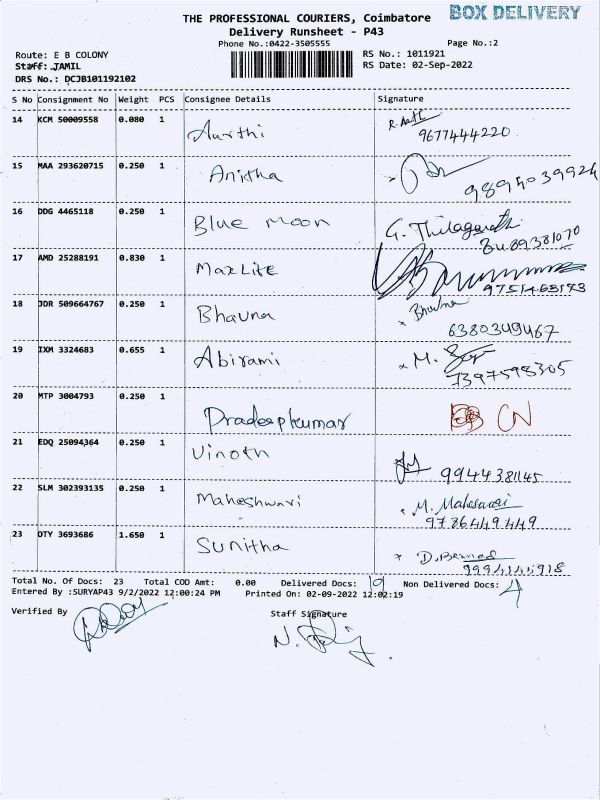 THE PROFESSIONAL COURIERS, Coimbatore
BOX DELIVERY
Delivery Runsheet - P43
Phone No.:0422-3505555
Page No.:2
Route: E B COLONY
RS No.: 1011921
Staff: JAMIL
RS Date: 02-Sep-2022
DRS No.: DCJB101192102
S No Consignment No Weight PCS Consignee Details Signature
14 KCM 50009558 0.080 1 Aarthi 9677444220
15 MAA 293620715 0.250 1 Anitha 9894039924
16 DDG 4465118 0.250 1 Blue moon G. Thilagavathi
17 AMD 25288191 0.830 1 MaxLite 9751463173
18 JDR 509664767 0.250 1 Bhavna Bhavna 6380349467
19 IXM 3324683 0.655 1 Abirami M. 7397598305
20 MTP 3004793 0.250 1 Pradeepkumar CN
21 EDQ 25094364 0.250 1 Vinoth 9944381145
22 SLM 302393135 0.250 1 Maheshwari M. 9786449449
23 OTY 3693686 1.650 1 Sunitha D.
Total No. Of Docs: 23 Total COD Amt: 0.00 Delivered Docs: 19 Non Delivered Docs: 4
Entered By :SURYAP43 9/2/2022 12:00:24 PM Printed On: 02-09-2022 12:02:19
Verified By Staff Signature